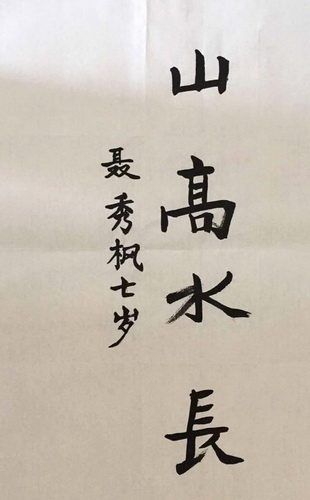 山髙水長
聂秀枫七岁